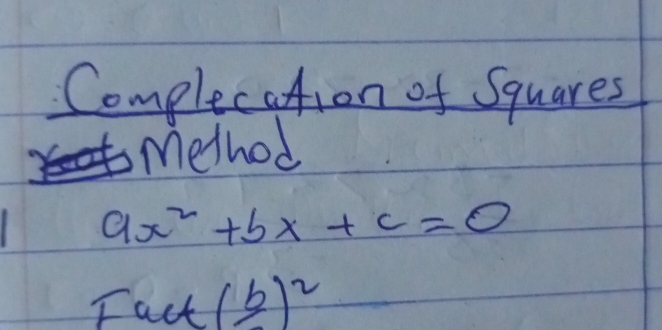 Complecation of Squares
Method
ax² + bx + c = 0
Fact (b/
)²